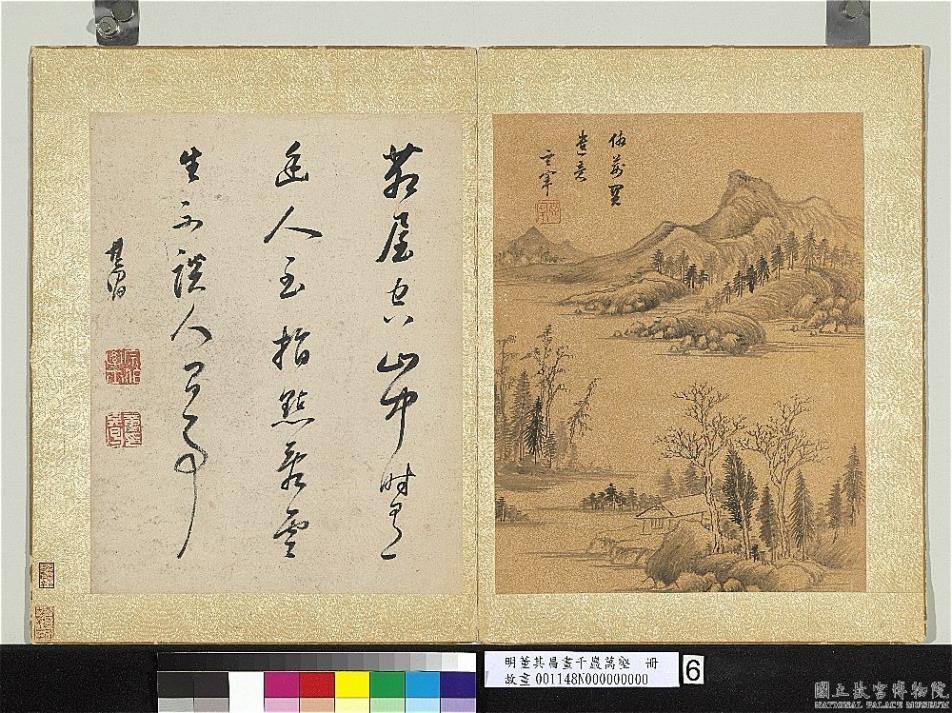 倣
遺意
玄宰
茅屋空山中時有
幽人至指點看雲
生不談人間事
其昌
明董其昌畫千巖萬壑 冊
故畫001148N000000000
6
國立故宮博物院
NATIONAL PALACE MUSEUM